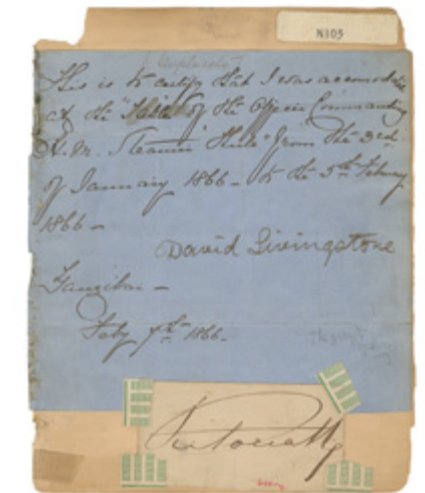 N103
(Duplicate)
This is to certify that I was accomodated
at the "Table" of the Officer Commanding
H.M. Steamer "Thule" from the 3rd
of January 1866 - to the 5th February
1866 -
David Livingstone
Zanzibar -
Feby 7th 1866 -